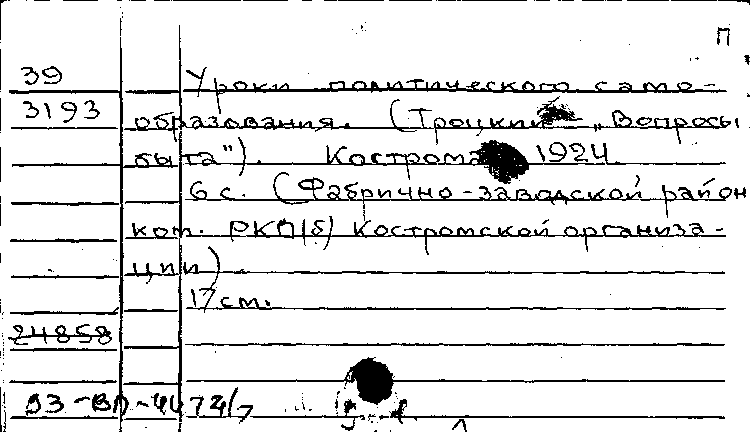 П
39 Уроки политического само-
3193 образования. (Троцкий – „Вопросы
быта"). Кострома 1924.
6 с. (Фабрично-заводской район
ком. РКП(б) Костромской организа-
ции).
17 см.
24858